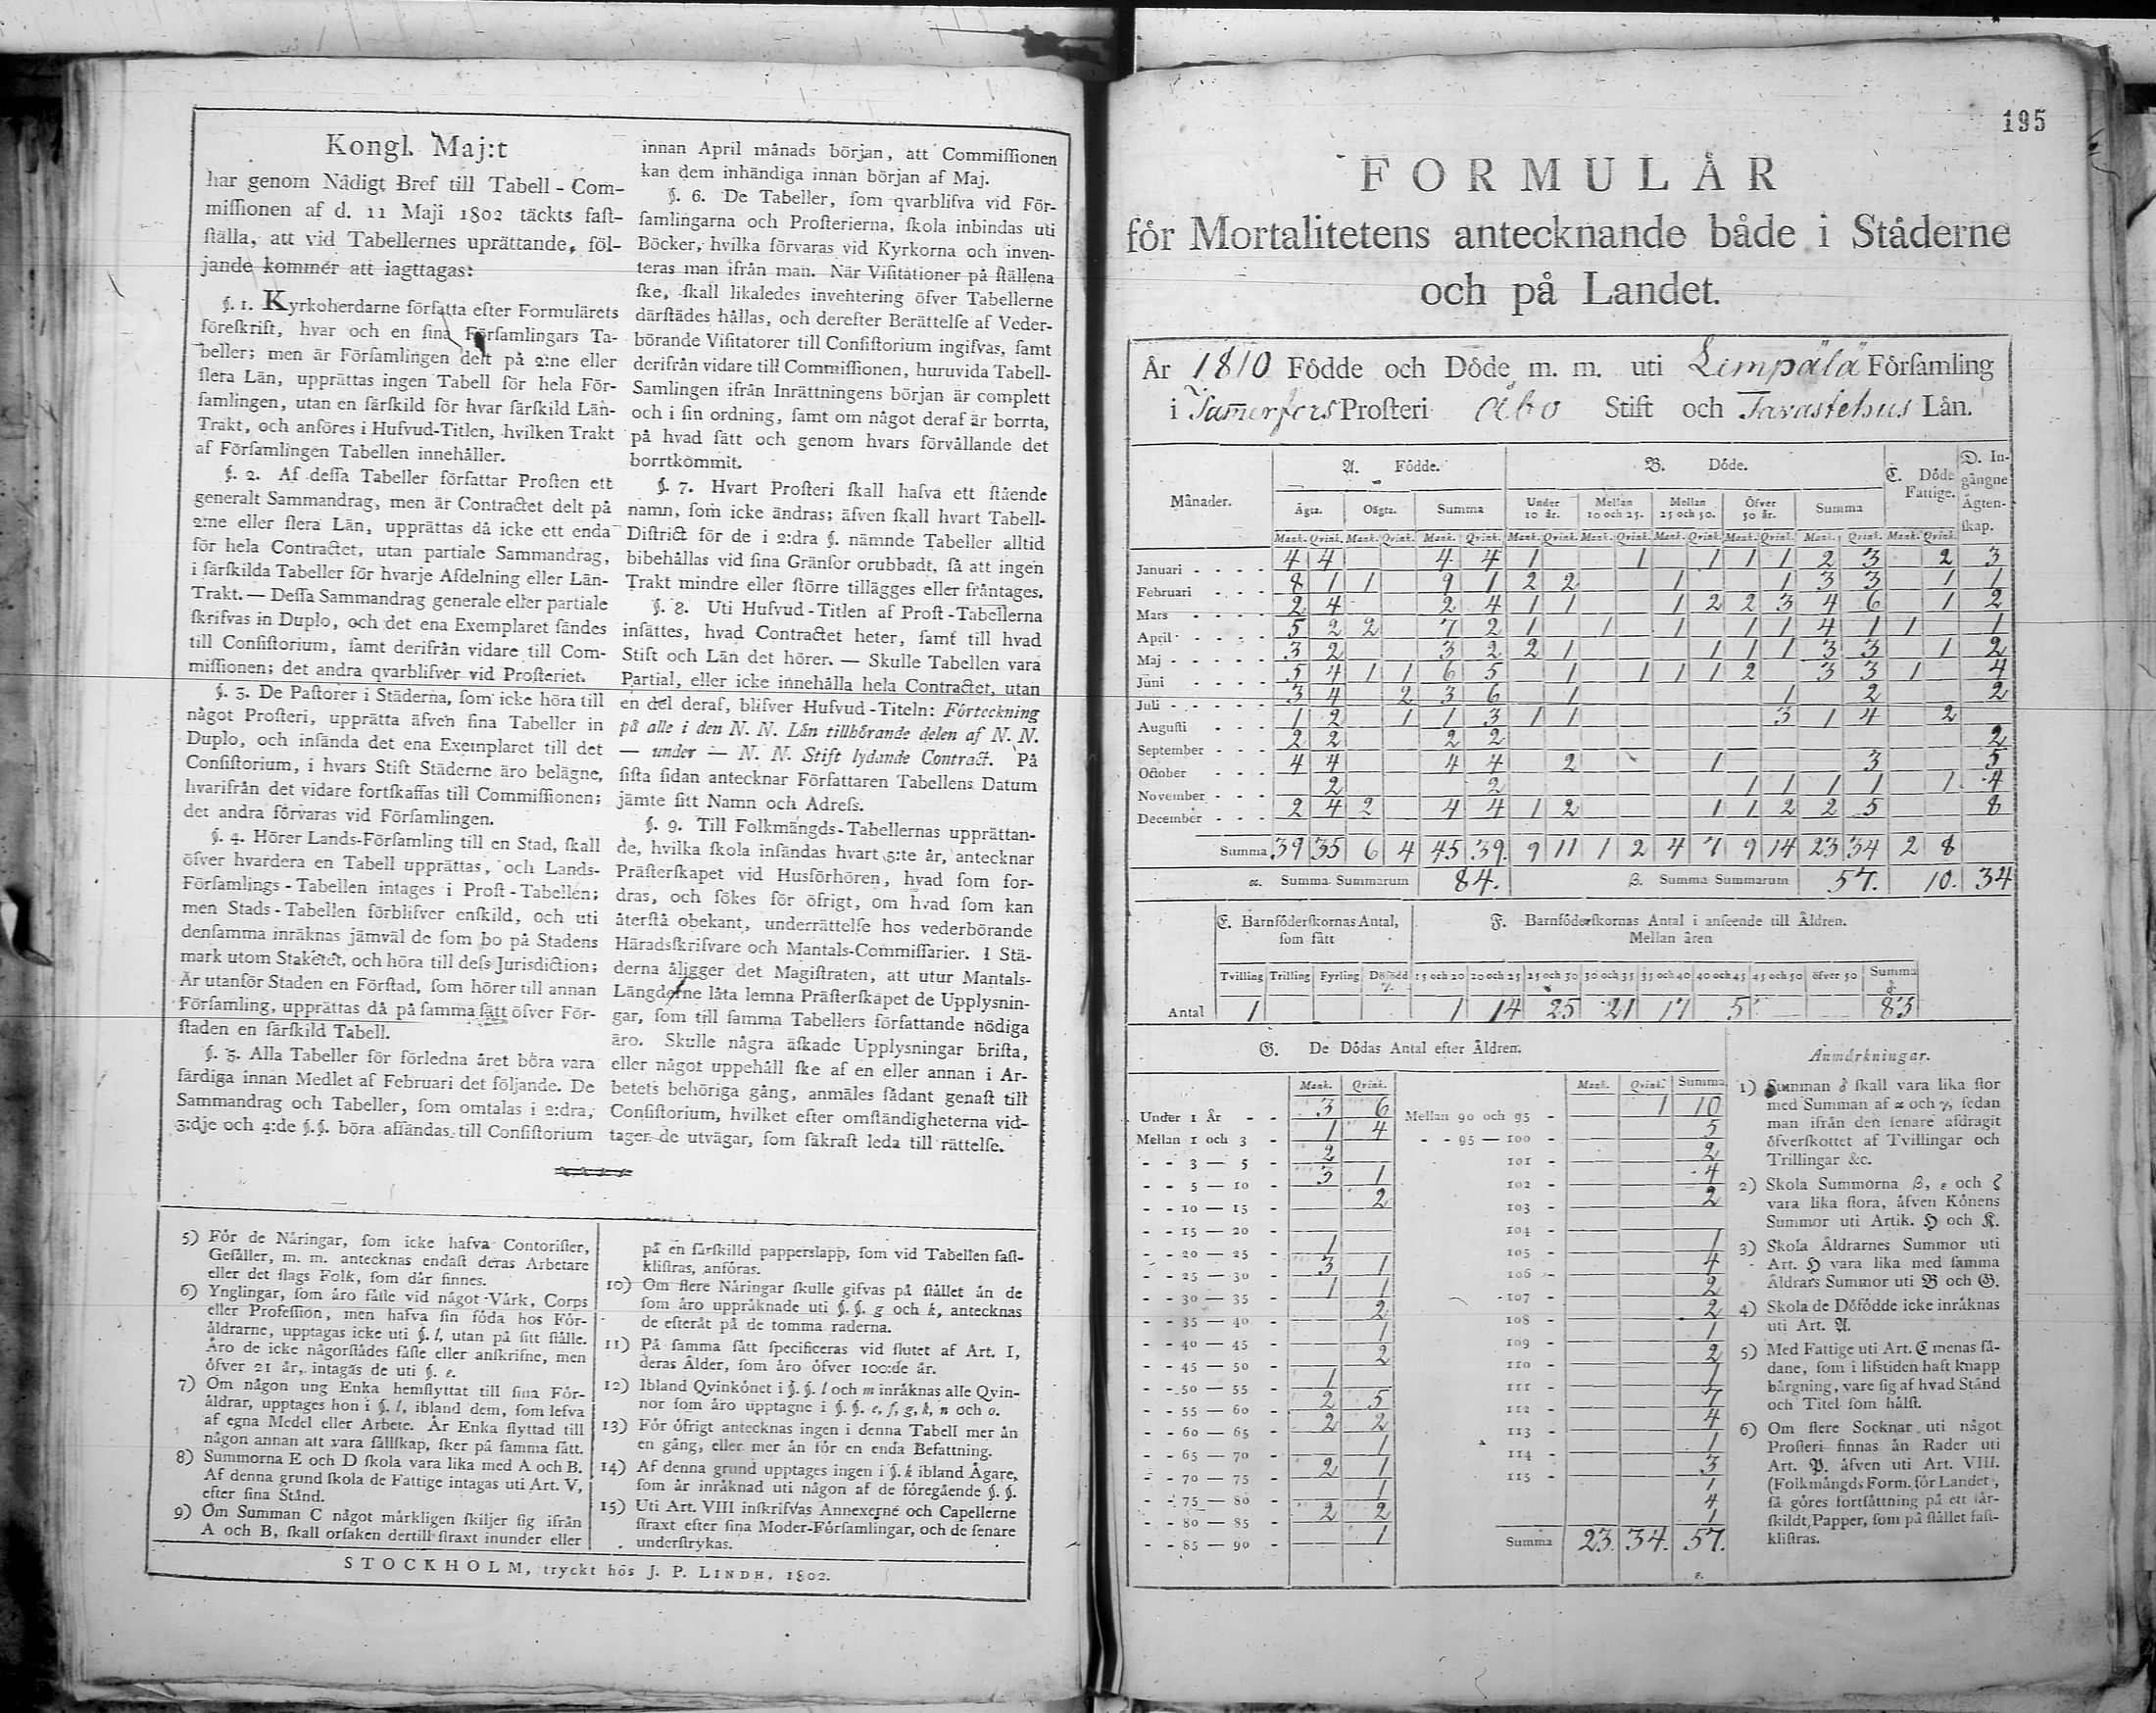 Kongl. Maj:t
har genom Nådigt Bref till Tabell-Com-
missionen af d. 11 Maji 1802 täckts fast-
ställa, att vid Tabellernes uprättande, föl-
jande kommer att iagttagas:
§. 1. Kyrkoherdarne författa efter Formulärets
föreskrift, hvar och en sina Församlingars Ta-
beller; men är Församlingen delt på 2:ne eller
flera Län, upprättas ingen Tabell för hela För-
samlingen, utan en särskild för hvar särskild Län-
Trakt, och anföres i Hufvud-Titlen, hvilken Trakt
af Församlingen Tabellen innehåller.
§. 2. Af dessa Tabeller författar Prosten ett
generalt Sammandrag, men är Contractet delt på
2:ne eller flera Län, upprättas då icke ett enda
för hela Contractet, utan partiale Sammandrag,
i särskilda Tabeller för hvarje Afdelning eller Län-
Trakt. — Dessa Sammandrag generale eller partiale
skrifvas in Duplo, och det ena Exemplaret sändes
till Consistorium, samt derifrån vidare till Com-
missionen; det andra qvarblifver vid Prosteriet.
§. 3. De Pastorer i Städerna, som icke höra till
något Prosteri, upprätta äfven sina Tabeller in
Duplo, och insända det ena Exemplaret till det
Consistorium, i hvars Stift Städerne äro belägne,
hvarifrån det vidare fortskaffas till Commissionen;
det andra förvaras vid Församlingen.
§. 4. Hörer Lands-Församling till en Stad, skall
öfver hvardera en Tabell upprättas, och Lands-
Församlings-Tabellen intages i Prost-Tabellen;
men Stads-Tabellen förblifver enskild, och uti
densamma inräknas jämväl de som bo på Stadens
mark utom Staketet, och höra till dess Jurisdiction;
Är utanför Staden en Förstad, som hörer till annan
Församling, upprättas då på samma sätt öfver För-
staden en särskild Tabell.
§. 5. Alla Tabeller för förledna året böra vara
färdiga innan Medlet af Februari det följande. De
Sammandrag och Tabeller, som omtalas i 2:dra,
3:dje och 4:de §.§. böra afsändas till Consistorium
innan April månads början, att Commissionen
kan dem inhändiga innan början af Maj.
§. 6. De Tabeller, som qvarblifva vid För-
samlingarna och Prosterierna, skola inbindas uti
Böcker, hvilka förvaras vid Kyrkorna och inven-
teras man ifrån man. När Visitationer på ställena
ske, skall likaledes inventering öfver Tabellerne
därstädes hållas, och derefter Berättelse af Veder-
börande Visitatorer till Consistorium ingifvas, samt
derifrån vidare till Commissionen, huruvida Tabell-
Samlingen ifrån Inrättningens början är complett
och i sin ordning, samt om något deraf är borrta,
på hvad sätt och genom hvars förvållande det
borrtkommit.
§. 7. Hvart Prosteri skall hafva ett stående
namn, som icke ändras; äfven skall hvart Tabell-
District för de i 2:dra §. nämnde Tabeller alltid
bibehållas vid sina Gränsor orubbadt, så att ingen
Trakt mindre eller större tillägges eller fråntages.
§. 8. Uti Hufvud-Titlen af Prost-Tabellerna
insättes, hvad Contractet heter, samt till hvad
Stift och Län det hörer. — Skulle Tabellen vara
Partial, eller icke innehålla hela Contractet, utan
en del deraf, blifver Hufvud-Titeln: Förteckning
på alle i den N. N. Län tillhörande delen af N. N.
— under — N. N. Stift lydande Contract. På
sista sidan antecknar Författaren Tabellens Datum
jämte sitt Namn och Adress.
§. 9. Till Folkmängds-Tabellernas upprättan-
de, hvilka skola insändas hvart 5:te år, antecknar
Prästerskapet vid Husförhören, hvad som for-
dras, och sökes för öfrigt, om hvad som kan
återstå obekant, underrättelse hos vederbörande
Häradsskrifvare och Mantals-Commissarier. I Stä-
derna åligger det Magistraten, att utur Mantals-
Längderne låta lemna Prästerskapet de Upplysnin-
gar, som till samma Tabellers författande nödiga
äro. Skulle några äskade Upplysningar brista,
eller något uppehåll ske af en eller annan i Ar-
betets behöriga gång, anmäles sådant genast till
Consistorium, hvilket efter omständigheterna vid-
tager de utvägar, som säkrast leda till rättelse.
5) För de Näringar, som icke hafva Contorister,
Gesäller, m. m. antecknas endast deras Arbetare
eller det slags Folk, som där finnes.
6) Ynglingar, som äro fäste vid något Värk, Corps
eller Profession, men hafva sin föda hos För-
äldrarne, upptagas icke uti §. l, utan på sitt ställe.
Äro de icke någorstädes fäste eller anskrifne, men
öfver 21 år, intagas de uti §. e.
7) Om någon ung Enka hemflyttat till sina För-
äldrar, upptages hon i §. l, ibland dem, som lefva
af egna Medel eller Arbete. Är Enka flyttad till
någon annan att vara sällskap, sker på samma sätt.
8) Summorna E och D skola vara lika med A och B.
Af denna grund skola de Fattige intagas uti Art. V,
efter sina Stånd.
9) Om Summan C något märkligen skiljer sig ifrån
A och B, skall orsaken dertill straxt inunder eller
på en särskilld papperslapp, som vid Tabellen fast-
klistras, anföras.
10) Om flere Näringar skulle gifvas på stället än de
som äro uppräknade uti §. §. g och k, antecknas
de efteråt på de tomma raderna.
11) På samma sätt specificeras vid slutet af Art. I,
deras Ålder, som äro öfver 100:de år.
12) Ibland Qvinkönet i §. §. l och m inräknas alle Qvin-
nor som äro upptagne i §. §. e, f, g, k, n och o.
13) För öfrigt antecknas ingen i denna Tabell mer än
en gång, eller mer än för en enda Befattning.
14) Af denna grund upptages ingen i §. k ibland Ägare,
som är inräknad uti någon af de föregående §. §.
15) Uti Art. VIII inskrifvas Annexerne och Capellerne
straxt efter sina Moder-Församlingar, och de senare
understrykas.
STOCKHOLM, tryckt hos J. P. LINDH, 1802.
195
FORMULÄR
för Mortalitetens antecknande både i Städerne
och på Landet.
År 1810 Födde och Döde m. m. uti Lempälä Församling
i Tamerfors Prosteri Åbo Stift och Tavastehus Län.
Månader. A. Födde. B. Döde. C. Döde Fattige. D. Ingångne Ägtenskap.
Ägta. Oägta. Summa Under 10 år. Mellan 10 och 25. Mellan 25 och 50. Öfver 50 år. Summa
Mank. Qvink. Mank. Qvink. Mank. Qvink. Mank. Qvink. Mank. Qvink. Mank. Qvink. Mank. Qvink. Mank. Qvink. Mank. Qvink.
Januari - - - - 4 4 4 4 1 1 1 1 1 2 3 2 3
Februari - - - 8 1 1 9 1 2 2 1 1 3 3 1 1
Mars - - - - 2 4 2 4 1 1 1 2 2 3 4 6 1 2
April - - - - 5 2 2 7 2 1 1 1 1 1 4 1 1 1
Maj - - - - - 3 2 3 2 2 1 1 1 1 3 3 1 2
Juni - - - - 5 4 1 1 6 5 1 1 1 1 2 3 3 1 4
Juli - - - - - 3 4 2 3 6 1 1 2 2
Augusti - - - 1 2 1 1 3 1 1 3 1 4 2
September - - - 2 2 2 2 2
October - - - 4 4 4 4 2 1 3 5
November - - - 2 2 1 1 1 1 1 4
December - - - 2 4 2 4 4 1 2 1 1 2 2 5 8
Summa 39 35 6 4 45 39. 9 11 1 2 4 7 9 14 23 34 2 8
α. Summa Summarum 84. β. Summa Summarum 57. 10. 34
E. Barnföderskornas Antal, F. Barnföderskornas Antal i anseende till Åldren.
som fått Mellan åren
Tvilling Trilling Fyrling Dödfödd γ. 15 och 20 20 och 25 25 och 30 30 och 35 35 och 40 40 och 45 45 och 50 öfver 50 Summa δ
Antal 1 1 14 25 21 17 5 83
G. De Dödas Antal efter Åldren.
Mank. Qvink. Mank. Qvink. Summa
Under 1 År - - 3 6 Mellan 90 och 95 - 1 10
Mellan 1 och 3 - 1 4 - - 95 — 100 - 5
- - 3 — 5 - 2 101 - 2
- - 5 — 10 - 3 1 102 - 4
- - 10 — 15 - 2 103 - 2
- - 15 — 20 - 104 -
- - 20 — 25 - 1 105 - 1
- - 25 — 30 - 3 1 106 - 4
- - 30 — 35 - 1 1 107 - 2
- - 35 — 40 - 2 108 - 2
- - 40 — 45 - 1 109 - 1
- - 45 — 50 - 2 110 - 2
- - 50 — 55 - 1 111 - 1
- - 55 — 60 - 2 5 112 - 7
- - 60 — 65 - 2 2 113 - 4
- - 65 — 70 - 1 114 - 1
- - 70 — 75 - 2 1 115 - 3
- - 75 — 80 - 1 1
- - 80 — 85 - 2 2 4
- - 85 — 90 - 1 1
Summa 23. 34. 57.
ε.
Anmärkningar.
1) Summan δ skall vara lika stor
med Summan af α och γ, sedan
man ifrån den senare afdragit
öfverskottet af Tvillingar och
Trillingar &c.
2) Skola Summorna β, ε och ζ
vara lika stora, äfven Könens
Summor uti Artik. H och K.
3) Skola Åldrarnes Summor uti
Art. H vara lika med samma
Åldrars Summor uti B och G.
4) Skola de Dödfödde icke inräknas
uti Art. A.
5) Med Fattige uti Art. C menas så-
dane, som i lifstiden haft knapp
bärgning, vare sig af hvad Stånd
och Titel som hälst.
6) Om flere Socknar uti något
Prosteri finnas än Rader uti
Art. P. äfven uti Art. VIII.
(Folkmängds Form. för Landet,
så göres fortsättning på ett sär-
skildt Papper, som på stället fast-
klistras.